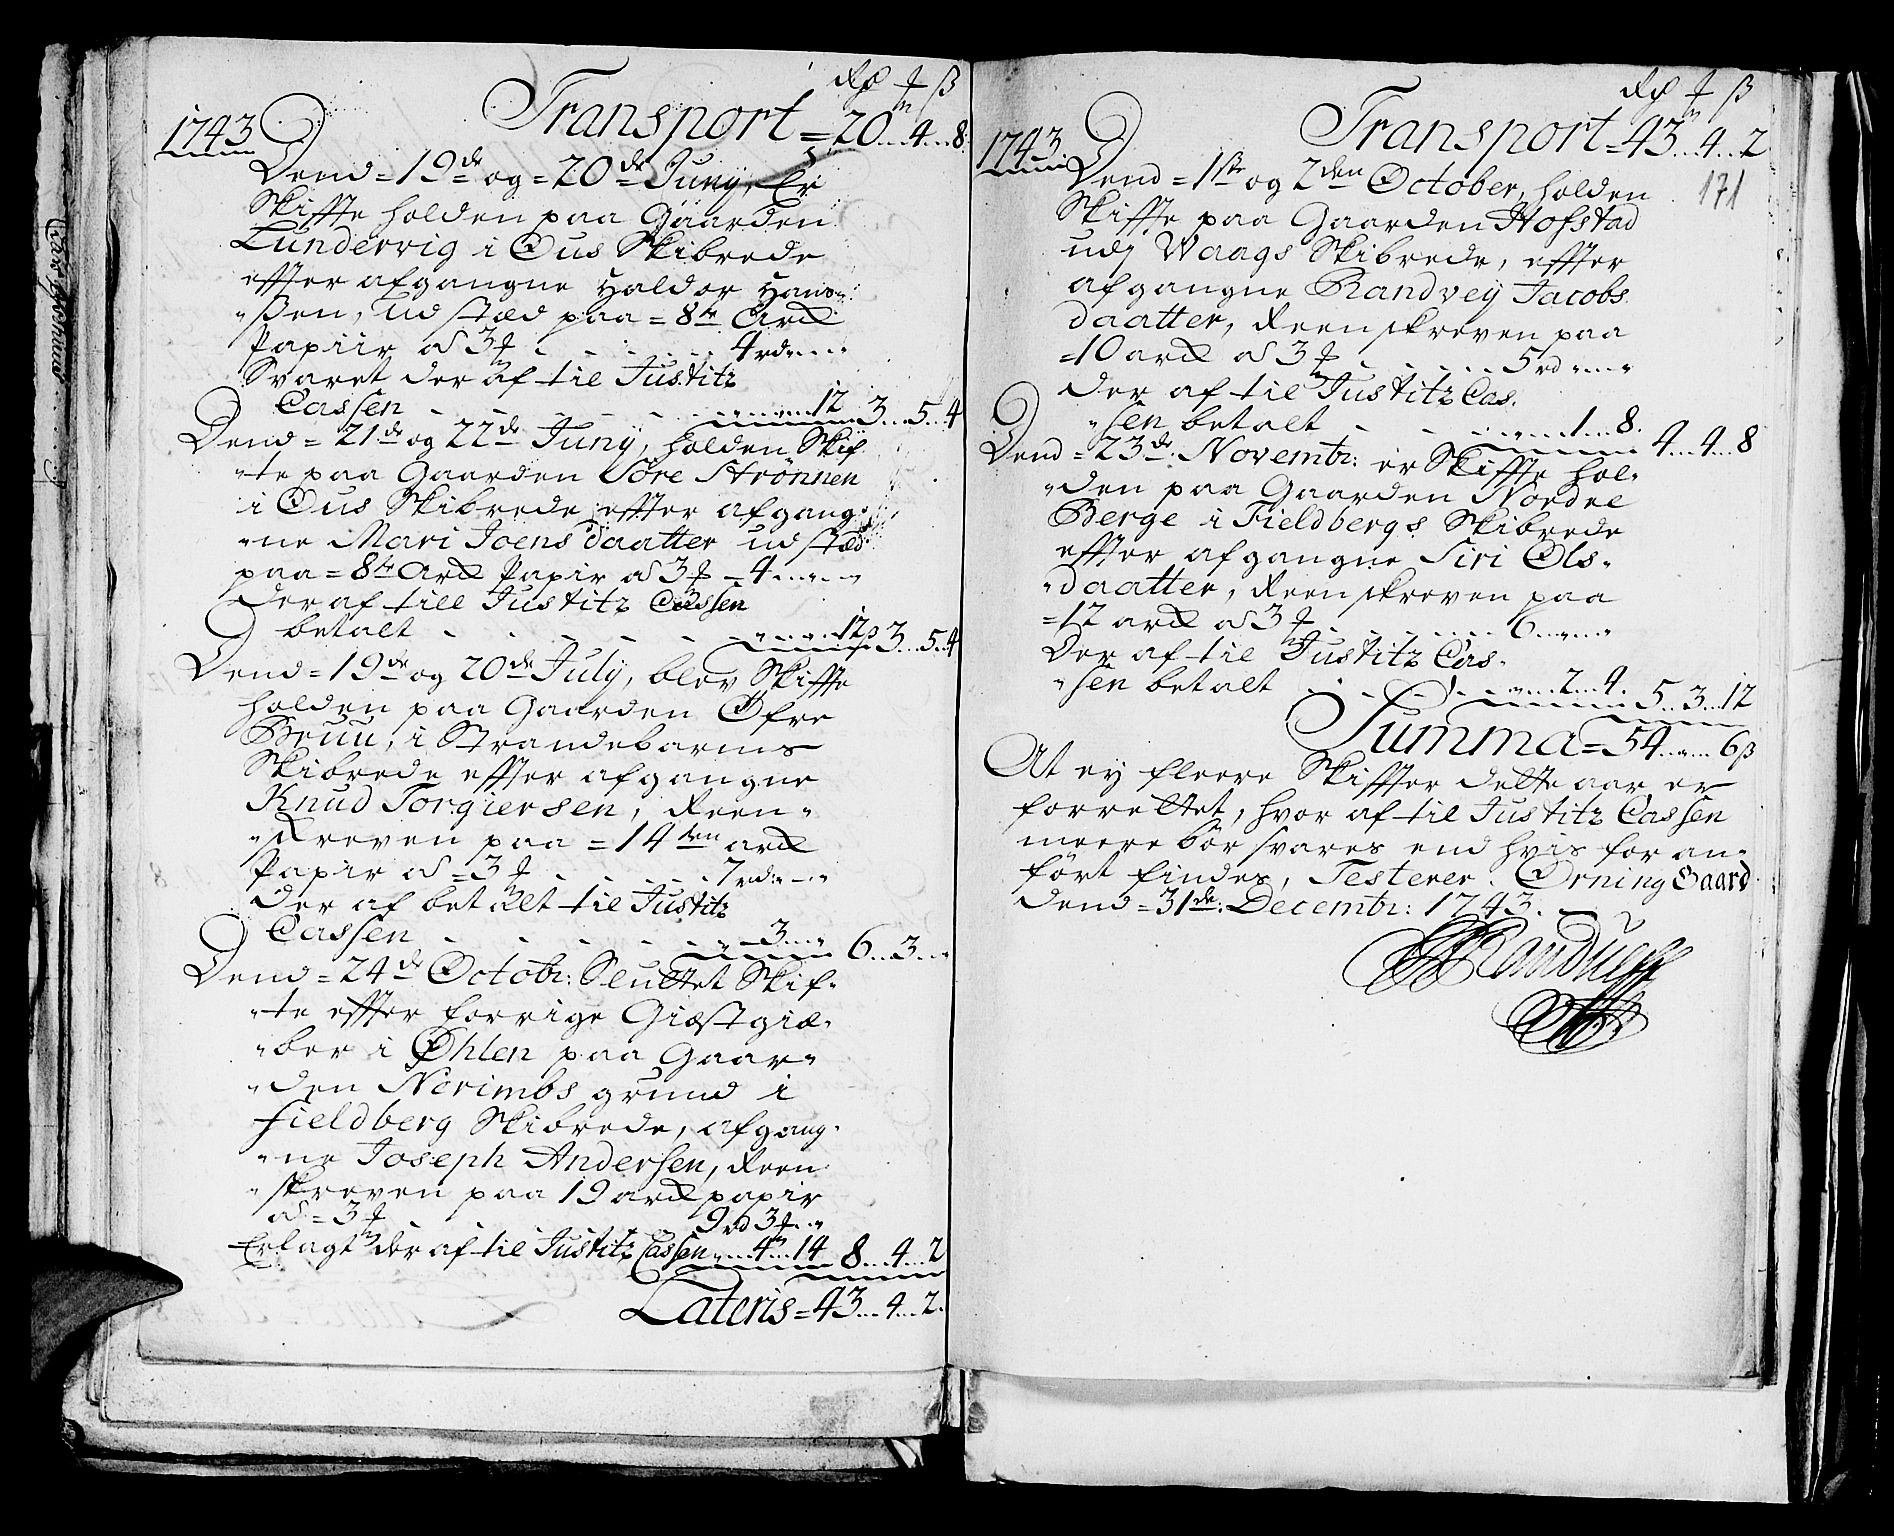 Rd m ß
Transport = 20...4...8.
1743
Dend = 19de og = 20de Juny, Er
Skiffte holden paa Gaarden
Lundervig i Ous Skibrede
effter afgangne Haldor Hans-
-ßen, udstæd paa = 8te Arck
Papiir ad 3 m . . . . 4 rd „ „
Svaret der af til Justitz
Cassen . . . . „ „ 12 3...5...4
Dend = 21de og 22de Juny, holden Skif-
-te paa Gaarden Søre Strönnen
i Ous Skibrede effter afgang-
-ne Mari Joens daatter udstæd
paa = 8te Arck Papir ad 3 m = 4 „ „
der af till Justitz Cassen
betalt . . . . . „ „ 12 ß 3...5...4
Dend = 19de og 20de July, blev Skiffte
holden paa Gaarden Øfre
Bruu, i Strandebarms
Skibrede effter afgangne
Knud Torgiersen, Reen-
-skreven paa = 14ten arck
Papir ad = 3 m . . . . 7 rd „ „
der af betalt til Justitz
Cassen . . . . . „ 3 „ 6...3...„
Dend = 24de Octobr: Sluttet Skif-
-te effter forrige Giæstgiæ-
-ber i Øhlen paa Gaar-
-den Nerimbs grund i
Fieldberg Skibrede, afgang-
-ne Joseph Andersen, Reen
-skreven paa 19 arck papir
ad = 3 m . . . 9 rd 3 m „
Erlagt der af til Justitz Cassen „ 4...14 8...4...2
Lateris = 43...4...2.
Rd m ß
Transport = 43...4...2
1743.
171
Dend = 1ste og 2den October, holden
Skiffte paa Gaarden Hofstad
udj Waags Skibrede, effter
afgangne Randvey Jacobs
daatter, Reenskreven paa
= 10 arck ad 3 m . . . . 5 rd „ „
der af til Justitz Cas-
-sen betalt . . . „ 1...8. 4...4...8
Dend = 23de Novembr: er Skiffte hol-
-den paa Gaarden Nordre
Berge i Fieldbergs Skibrede
effter afgangne Siri Ols-
-daatter, Reenskreven paa
= 12 arck ad 3 m . . . . 6 „ „
Der af til Justitz Cas-
-sen betalt . . . . „ 2...4. 5...3...12
Summa = 54...„...6 ß
At ey fleere Skiffter dette aar er
forrettet, hvor af til Justitz Cassen
meere bör svares end hvis for an-
fört findes, Testerer. Ørning Gaard
Dend = 31de: Decembr: 1743.